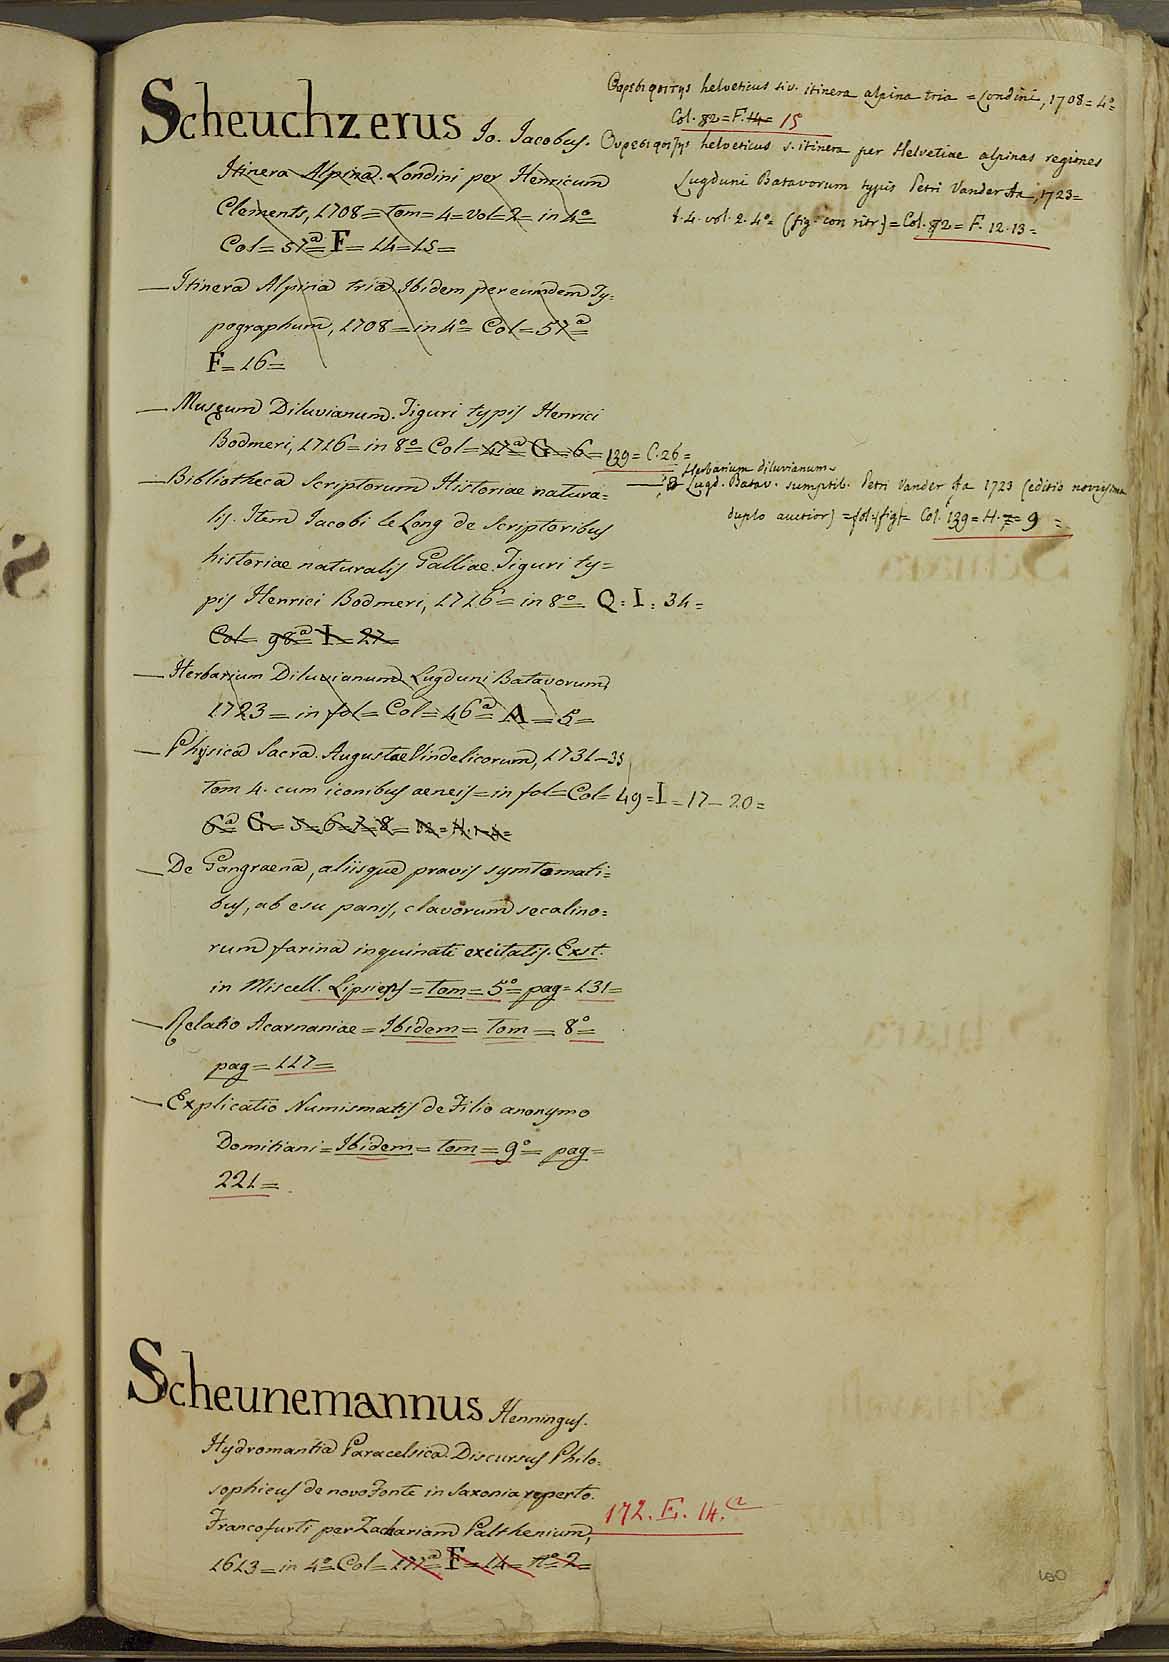 Scheuchzerus Jo. Jacobus.
Itinera Alpina. Londini per Henricum
Clements, 1708 = tom = 4 = vol = 2 = in 4º =
Col = 57ª F = 14 = 15 =
— Itinera Alpina tria. Ibidem per eumdem Ty=
pographum, 1708 = in 4º = Col = 57ª =
F = 16 =
— Museum Diluvianum. Tiguri typis Henrici
Bodmeri, 1716 = in 8º = Col = 47ª G = 6 = 139 = C. 26 =
— Bibliotheca Scriptorum Historiae natura=
lis. Item Jacobi le Long de Scriptoribus
historiae naturalis Galliae. Tiguri ty=
pis Henrici Bodmeri, 1716 = in 8º = Q = I = 34 =
Col = 98ª I = 27 =
— Herbarium Diluvianum Lugduni Batavorum,
1723 = in fol = Col = 46ª = A = 5 =
— Physica Sacra. Augustae Vindelicorum, 1731 – 35
tom 4. cum iconibus aeneis = in fol = Col = 49 = I = 17 – 20 =
6ª G = 5 = 6 = 7 = 8 =
— De Gangraena, aliisque pravis symtomati=
bus, ab esu panis, clavorum secalino=
rum farina inquinati excitatis. Exst.
in Miscell. Lipsiens = tom = 5º = pag = 131 =
— Relatio Acarnaniae = Ibidem = Tom = 8º =
pag = 117 =
— Explicatio Numismatis de Filio anonymo
Domitiani = Ibidem = tom = 9º = pag =
221 =
Ουρεσιφοιτης helveticus siv. itinera alpina tria = Londini, 1708 = 4º =
Col. 82 = F. 14 = 15
Ουρεσιφοιτης helveticus s. itinera per Helvetiae alpinas regiones
Lugduni Batavorum typis Petri Vander Aa, 1723 =
t. 4. vol. 2. 4º = (fig. con ritr) = Col. 82 = F. 12. 13 =
Herbarium diluvianum
— Lugd. Batav. sumptib. Petri Vander Aa 1723 (editio novissima
duplo auctior) = fol. (fig) = Col. 139 = H. 7 = 9 =
Scheunemannus Henningus.
Hydromantia Paracelsica. Discursus Philo=
sophicus de novo Fonte in Saxonia reperto.
Francofurti per Zachariam Palthenium,
1613 = in 4º = Col = 117ª F = 14 = nº 2 =
172. E. 14.